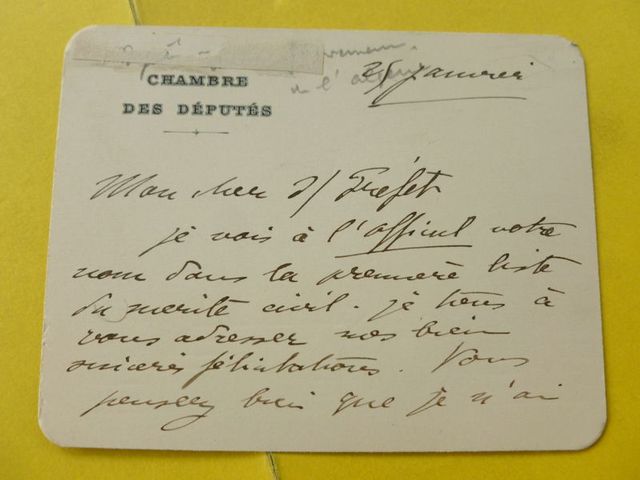 CHAMBRE
DES DÉPUTÉS
25 janvier
Mon cher S/ Préfet
je vois à l'officiel votre
nom dans la première liste
du merite civil. je tiens à
vous adresser nos bien
sincères félicitations. Vous
pensez bien que je n'ai